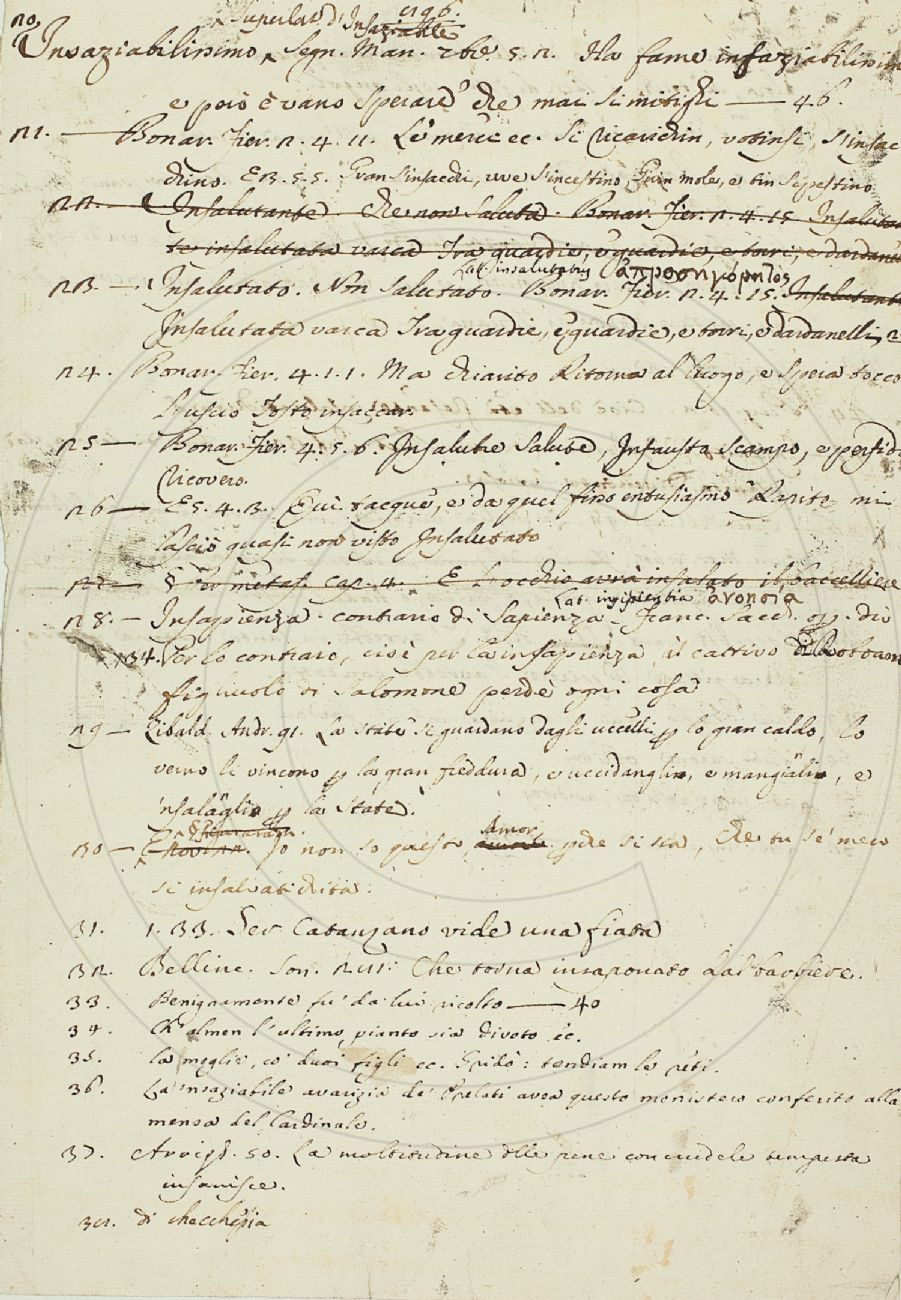 20. Superlat. d'Insaziabile
Insaziabilissimo, Segn. Man. 2bre. 5. 2. Ha fame insaziabilissim
e però è vano sperare che mai si mitighi — 46.
21. — Bonar. Fier. 2. 4. 11. Le merci ec. Si ricarichin, votinsi, s'insac
chino. E 3. 5. 5. Gran s'insacchi, uve s'incestino,
22. — Insalutante che non saluta. Bonar. Fier. 2. 4. 15. Insalutan
te insalutata varca Tra guardie, e guardie, e torri, e dardanelli
Lat. insalutatus ἀπροσηγόρητος
23. — Insalutato. Non salutato. Bonar. Fier. 2. 4. 15. Insalutante
Insalutata varca Tra guardie, e guardie, e torri, e dardanelli
24. Bonar. Fier. 4. 1. 1. Ma chiarito Ritorna al luogo, e spera tocco
L'uscio Tosto insaccar.
25 — Bonar. Fier. 4. 5. 6. Insalubre salute, Infausto scampo, e perfid
Ricovero.
26 — E 5. 4. 3. E quì tacque, e da quel fiero entusiasmo Rapito mi
lasciò quasi non visto Insalutato
27 — § Per metaf. Cap. 4. E l'occhio avrà insalato il baccelliere
Lat. insipientia ἄνοησία
28. — Insapienza. contrario di Sapienza. Franc. Sacch. op. div
134. Per lo contrario, cioè per la insapienza, il cattivo di Roboam
figliuolo di Salomone perdè ogni cosa
29 — Zibald. Andr. 91. La state si guardano dagli uccelli p lo gran caldo, lo
verno li vincono p la gran freddura, e uccidangli, e mangiali, e
'nsalangli p la state.
30 — Io non so questo Amor, pche si sia, Che tu se' meco
si insalvatichita.
31. 1. 33. Ser Catanzano vide una fiata
32. Bellinc. Son. 211. Che torna insaponato dal barbiere.
33. Benignamente fu da lui ricolto — 40
34. Ch'almen l'ultimo pianto sia divoto ec.
35. la moglie, co' duoi figli ec. Gridò: tendiam le reti.
36. La 'nsaziabile avarizia de' Prelati avea questo monistero conferito alla
mensa del Cardinale.
37. Arrigh. 50. La moltitudine dlle pene con crudele tempesta
insanisce.
38. di checchesia